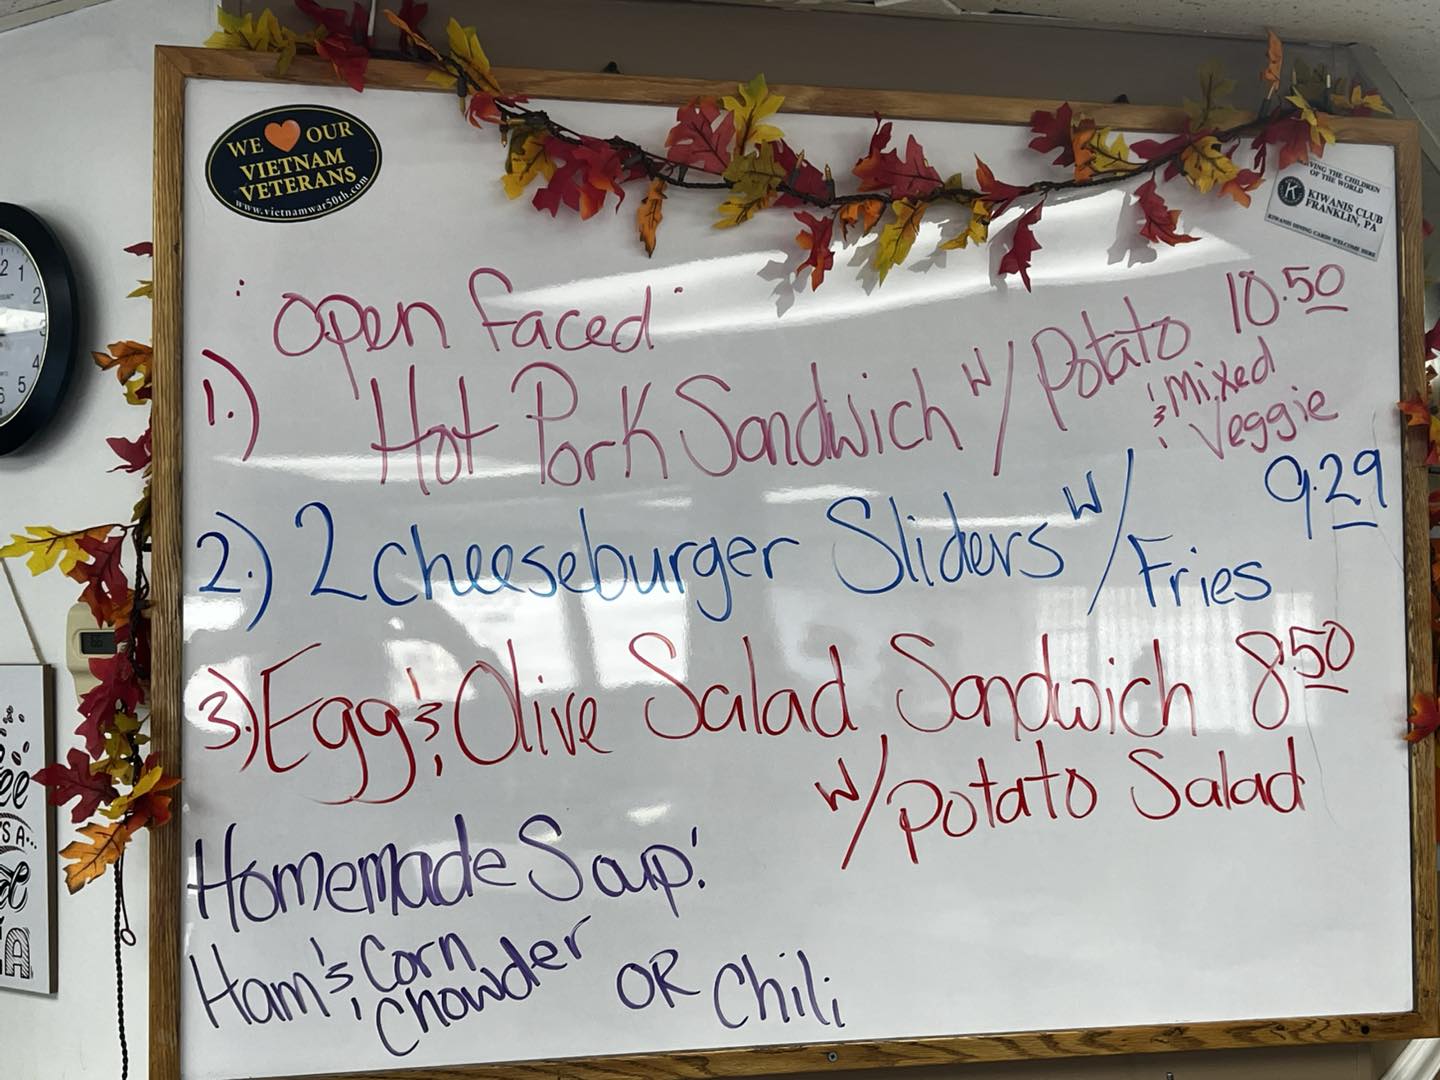 WE ❤ OUR
VIETNAM
VETERANS
www.vietnamwar50th.com
SERVING THE CHILDREN
OF THE WORLD
KIWANIS CLUB
FRANKLIN, PA
KIWANIS DINING CARDS WELCOME HERE
open faced
1.) Hot Pork Sandwich w/ Potato 10.50
& Mixed
Veggie
2.) 2 cheeseburger Sliders w/ Fries 9.29
3.) Egg & Olive Salad Sandwich 8.50
w/ potato Salad
Homemade Soup!
Ham & Corn
Chowder OR Chili
2 1
2
4
5